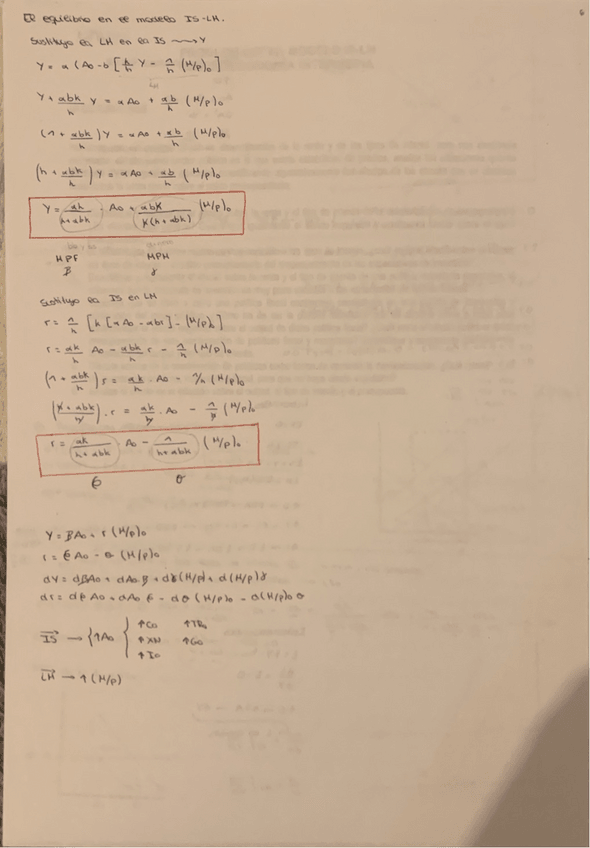 El equilibrio en el modelo IS-LM.
Sustituyo la LM en la IS ⟶ Y
Y = α (A₀ - b [k/h Y - 1/h (M/P)₀]
LM
Y + αbk/h Y = αA₀ + αb/h (M/P)₀
(1 + αbk/h) Y = αA₀ + αb/h (M/P)₀
(h + αbk/h) Y = αA₀ + αb/h (M/P)₀
Y = αh/(h+αbk) · A₀ + αbh/h(h+αbk) (M/P)₀
MPF MPM
β γ
Sustituyo la IS en LM
r = 1/h [k [αA₀ - αbr] - (M/P)₀]
r = αk/h A₀ - αbk/h r - 1/h (M/P)₀
(1 + αbk/h) r = αk/h · A₀ - 1/h (M/P)₀
(h + αbk/h) · r = αk/h · A₀ - 1/h (M/P)₀
r = αk/(h+αbk) · A₀ - 1/(h+αbk) (M/P)₀
ϐ θ
Y = βA₀ + γ (M/P)₀
r = ϐ A₀ - θ (M/P)₀
dY = dβA₀ + dA₀ β + dγ (M/P) + d(M/P)γ
dr = dϐ A₀ + dA₀ ϐ - dθ (M/P)₀ - d(M/P)₀ θ
IS → {↑A₀ { ↑C₀ ↑TR₀
↑XN ↑G₀
↑I₀
LM → ↑(M/P)